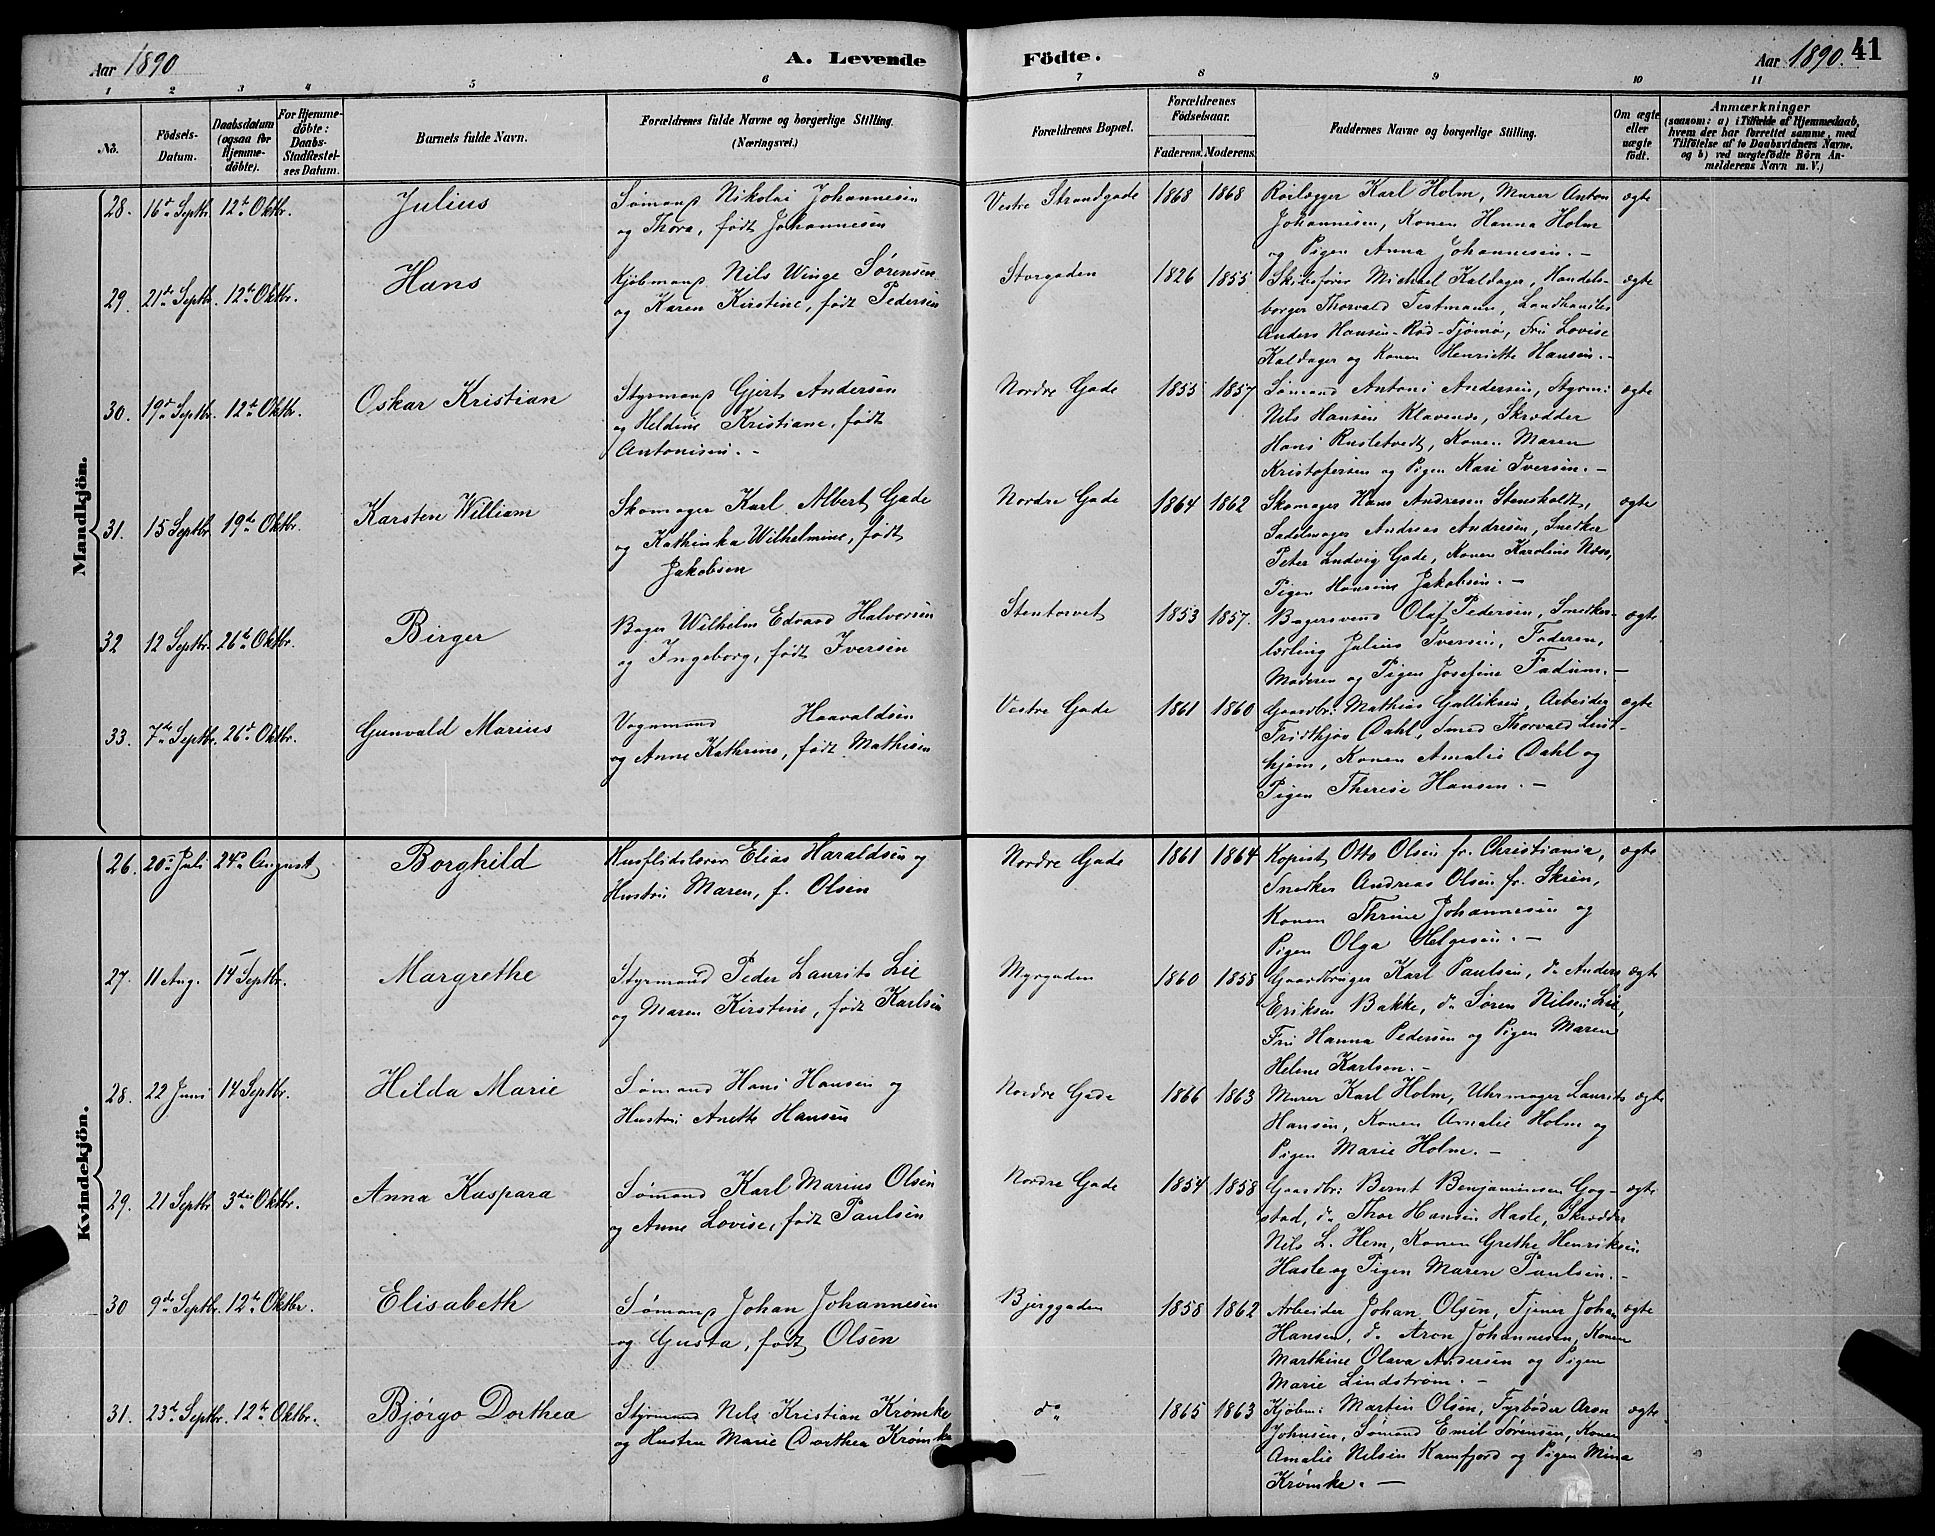 Aar 1890
A. Levende
Födte.
Aar 1890.
41
1 2 3 4 5 6 7 8 9 10 11
No.
Födsels-
Datum.
Daabsdatum
(ogsaa for
Hjemme-
döbte).
For Hjemme-
döbte:
Daabs-
Stadfæstel-
ses Datum.
Barnets fulde Navn.
Forældrenes fulde Navne og borgerlige Stilling.
(Næringsvei.)
Forældrenes Bopæl.
Forældrenes
Födselsaar.
Faderens. Moderens.
Faddernes Navne og borgerlige Stilling.
Om ægte
eller
uægte
födt.
Anmærkninger
(saasom: a) i Tilfælde af Hjemmedaab,
hvem der har forrettet samme, med
Tilföielse af to Daabsvidners Navne.
og b) ved uægtefödte Börn An-
melderens Navn m. V.)
Mandkjön.
28. 16de Septb. 12te Oktbr. Julius
Sømand Nikolai Johannesen
og Thora, født Johannesen
Vestre Strandgade 1868 1868
Rørlægger Karl Holm, Murer Anton
Johannesen, Konen Hanna Holm
og Pigen Anna Johannesen. –
ægte
29. 21de Septbr. 12te Oktbr. Hans
Kjøbmand Nils Winge Sørensen
og Karen Kirstine, født Pedersen
Storgaden 1826 1855
Skibsfører Michael Kaldager, Handels-
borger Thorvald Testmann, Landhandler
Anders Hansen-Rød-Tjømø, Fru Lovise
Kaldager og Konen Henriette Hansen. –
ægte
30. 19de Septbr. 12te Oktbr. Oskar Kristian
Styrmand Gjert Andersen
og Heldine Kristiane, født
Antonisen. –
Nordre Gade 1855 1857
Sømand Antoni Andersen, Styrm:
Nils Hansen Klavenæs, Skrædder
Hans Rusletvedt, Konen Maren
Kristofersen og Pigen Kari Iversen. –
ægte
31. 15 Septbr. 19de Oktbr. Karsten William
Skomager Karl Albert Gade
og Kathinka Wilhelmine, født
Jakobsen
Nordre Gade 1864 1862
Skomager Hans Andresen Stensholdt,
Sadelmager Andreas Andresen, Snedker
Peter Ludvig Gade, Konen Karoline Næss,
Pigen Hansine Jakobsen. –
ægte
32 12 Septbr. 26de Oktbr. Birger
Bager Wilhelm Edvard Halvorsen
og Ingeborg, født Iversen
Stentorvet 1853 1857.
Bagersvend Olaf Pedersen, Snedker-
lærling Julius Iversen, Faderen,
Moderen og Pigen Josefine Fadum. –
ægte
33. 7de Septbr. 26de Oktbr. Gunvald Marius
Vognmand Haavaldsen
og Anne Kathrine, født Mathisen
Vestre Gade 1861 1860
Gaardbr: Mathias Gulliksen, Arbeider
Fridthjov Dahl, Smed Thorvald Lind-
hjem, Konen Amalie Dahl og
Pigen Therese Hansen. –
ægte
Kvindekjön.
26. 20de Juli 24de August Borghild
Husflidslærer Elias Haraldsen og
Hustru Maren, f. Olsen
Nordre Gade 1861 1864
Kopist Otto Olsen fr. Christiania,
Snedker Andreas Olsen fr. Skien,
Konen Thrine Johannesen og
Pigen Olga Helgesen. –
ægte
27. 11 Aug. 14 Septbr. Margrethe
Styrmand Peder Laurits Lie
og Maren Kirstine, født Karlsen
Myrgaden 1860 1858
Gaardbruger Karl Paulsen, do Anders
Eriksen Bakke, do Søren Nilsen Lie,
Fru Hanna Pedersen og Pigen Maren
Helene Karlsen. –
ægte
28. 22 Juni 14 Septbr. Hilda Marie
Sømand Hans Hansen og
Hustru Anette Hansen
Nordre Gade 1866 1863
Murer Karl Holm, Uhrmager Laurits
Hansen, Konen Amalie Holm og
Pigen Marie Holm. –
ægte
29. 21 Septbr. 3die Oktbr. Anna Kaspara
Sømand Karl Marius Olsen
og Anne Lovise, født Paulsen
Nordre Gade 1854 1858
Gaardbr: Bernt Benjaminsen Gog-
stad, do Thor Hansen Hasle, Skrædder
Nils L. Hem, Konen Grethe Henriksen
Hasle og Pigen Maren Paulsen. –
ægte
30 9de Septbr. 12te Oktbr. Elisabeth
Sømand Johan Johannesen
og Gusta, født Olsen
Bjerggaden 1858 1862
Arbeider Johan Olsen, Tjener Johan
Hansen, do Aron Johannesen, Konen
Marthine Olava Andersen og Pigen
Marie Lindstrøm. –
ægte
31. 23de Septbr. 12te Oktbr. Bjørgo Dorthea
Styrmand Nils Kristian Krømke
og Hustru Marie Dorthea Krømke
do 1865 1863
Kjøbm: Martin Olsen, Fyrbøder Aron
Johnsen, Sømand Emil Sørensen, Konen
Amalie Nilsen Kamfjord og Pigen Mina
Krømke. –
ægte